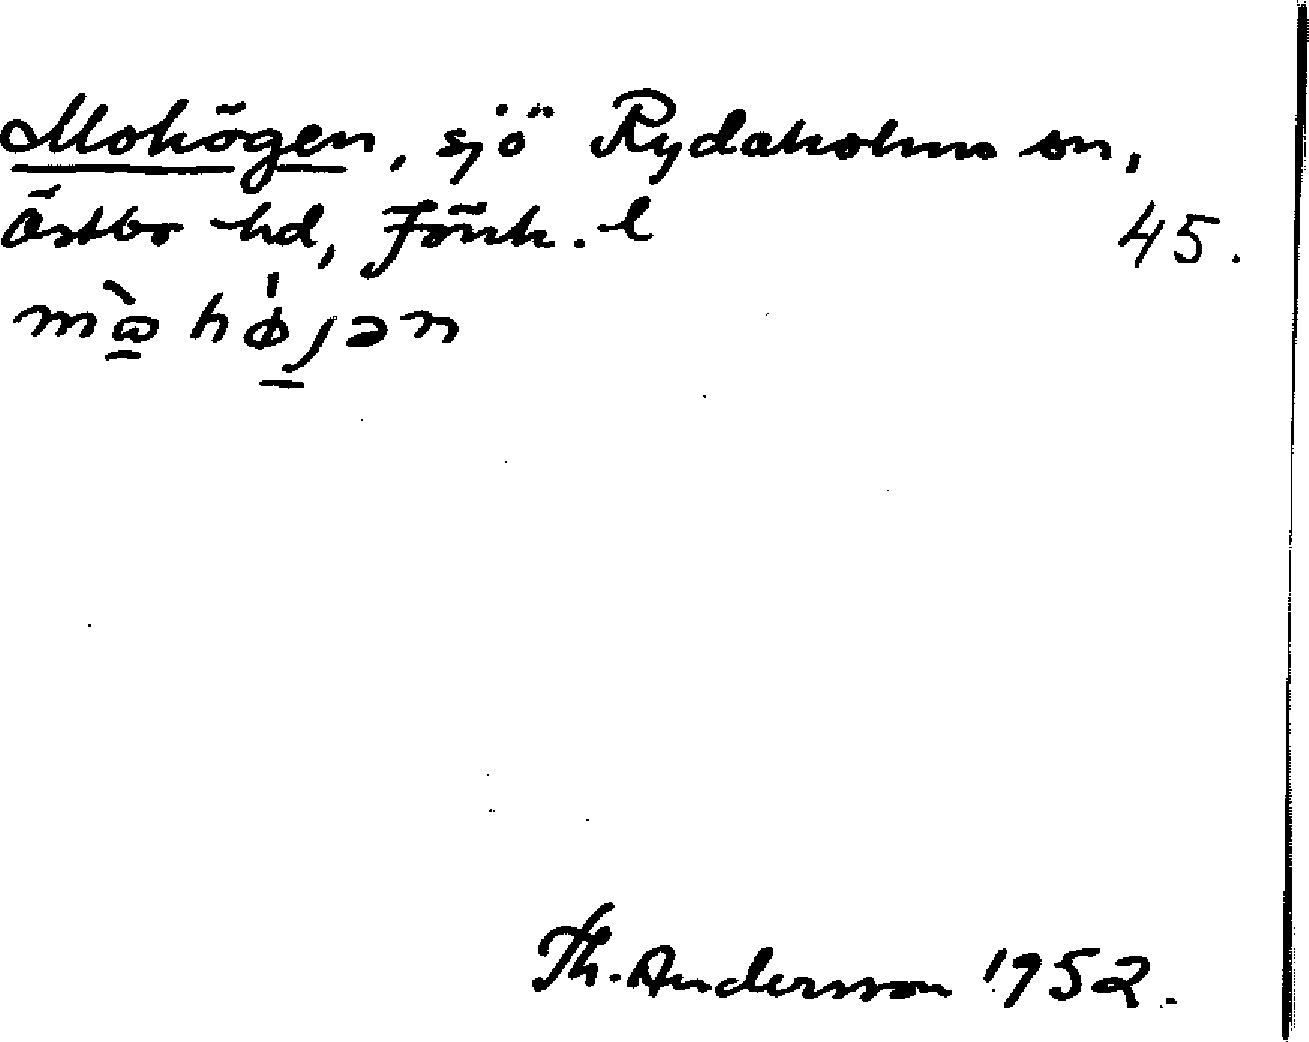 Mohögen, sjö Rydaholms sn,
Östbo hd, Jönk. l 45.
mɷ̀højən
Th. Andersson 1952.